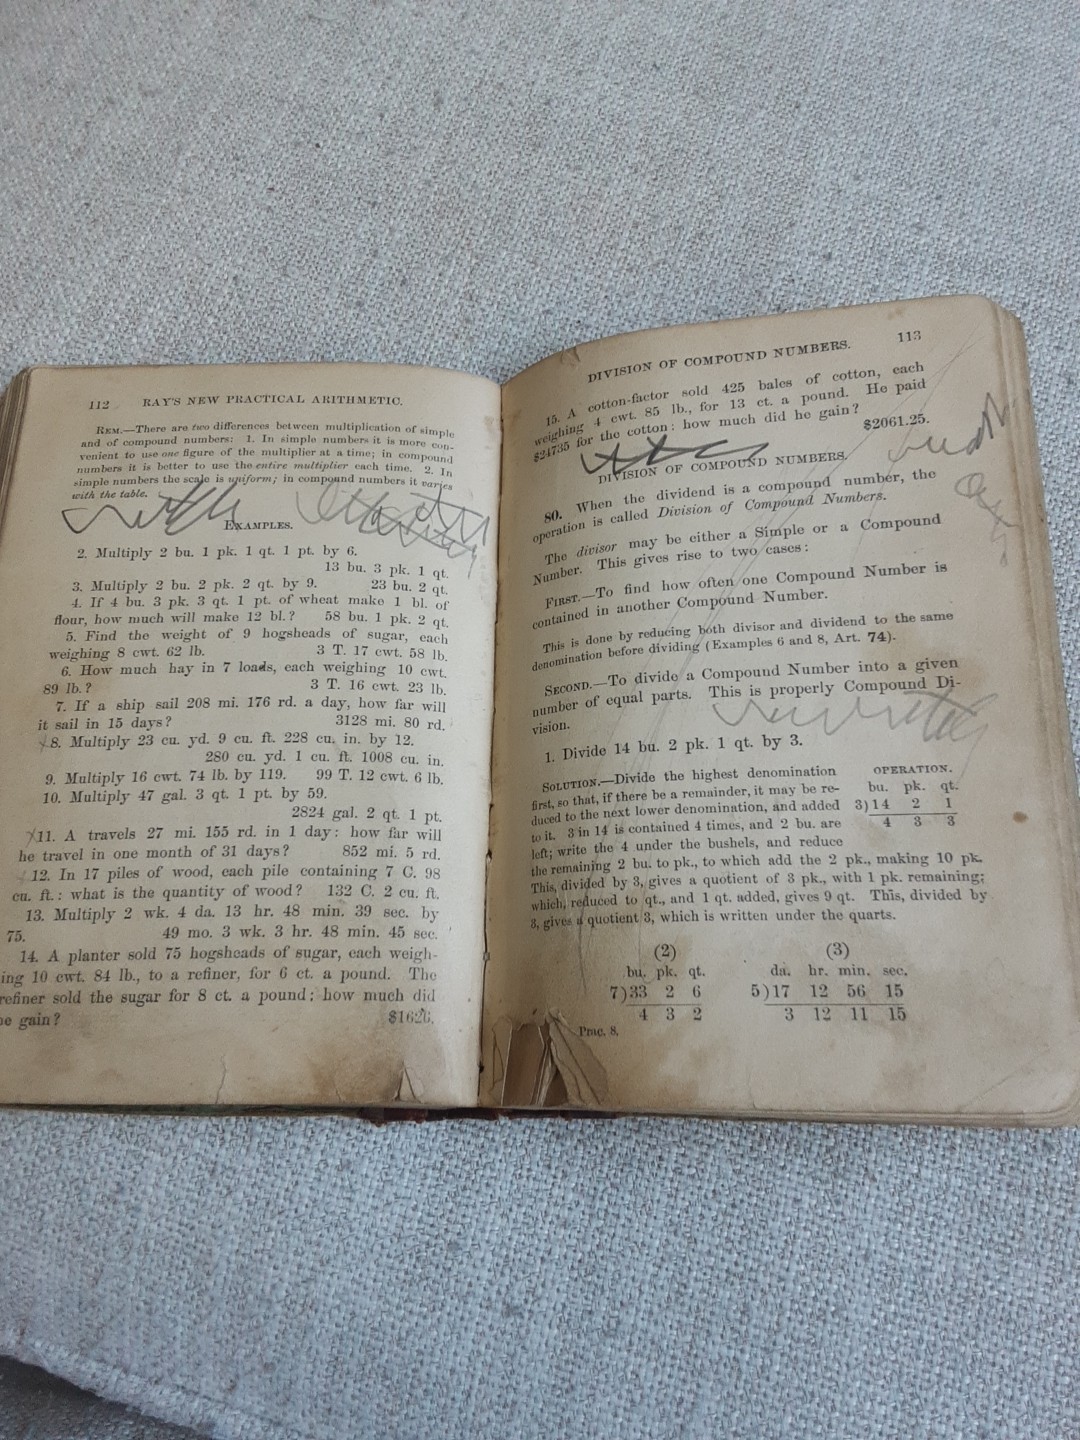 112 RAY'S NEW PRACTICAL ARITHMETIC.
REM.—There are two differences between multiplication of simple
and of compound numbers: 1. In simple numbers it is more con-
venient to use one figure of the multiplier at a time; in compound
numbers it is better to use the entire multiplier each time. 2. In
simple numbers the scale is uniform; in compound numbers it varies
with the table.
EXAMPLES.
2. Multiply 2 bu. 1 pk. 1 qt. 1 pt. by 6.
13 bu. 3 pk. 1 qt.
3. Multiply 2 bu. 2 pk. 2 qt. by 9. 23 bu. 2 qt.
4. If 4 bu. 3 pk. 3 qt. 1 pt. of wheat make 1 bl. of
flour, how much will make 12 bl.? 58 bu. 1 pk. 2 qt.
5. Find the weight of 9 hogsheads of sugar, each
weighing 8 cwt. 62 lb. 3 T. 17 cwt. 58 lb.
6. How much hay in 7 loads, each weighing 10 cwt.
89 lb.? 3 T. 16 cwt. 23 lb.
7. If a ship sail 208 mi. 176 rd. a day, how far will
it sail in 15 days? 3128 mi. 80 rd.
8. Multiply 23 cu. yd. 9 cu. ft. 228 cu. in. by 12.
280 cu. yd. 1 cu. ft. 1008 cu. in.
9. Multiply 16 cwt. 74 lb. by 119. 99 T. 12 cwt. 6 lb.
10. Multiply 47 gal. 3 qt. 1 pt. by 59.
2824 gal. 2 qt. 1 pt.
11. A travels 27 mi. 155 rd. in 1 day: how far will
he travel in one month of 31 days? 852 mi. 5 rd.
12. In 17 piles of wood, each pile containing 7 C. 98
cu. ft.: what is the quantity of wood? 132 C. 2 cu. ft.
13. Multiply 2 wk. 4 da. 13 hr. 48 min. 39 sec. by
75. 49 mo. 3 wk. 3 hr. 48 min. 45 sec.
14. A planter sold 75 hogsheads of sugar, each weigh-
ing 10 cwt. 84 lb., to a refiner, for 6 ct. a pound. The
refiner sold the sugar for 8 ct. a pound: how much did
he gain? $1626.
DIVISION OF COMPOUND NUMBERS. 113
15. A cotton-factor sold 425 bales of cotton, each
weighing 4 cwt. 85 lb., for 13 ct. a pound. He paid
$24735 for the cotton: how much did he gain?
$2061.25.
DIVISION OF COMPOUND NUMBERS.
80. When the dividend is a compound number, the
operation is called Division of Compound Numbers.
The divisor may be either a Simple or a Compound
Number. This gives rise to two cases:
FIRST.—To find how often one Compound Number is
contained in another Compound Number.
This is done by reducing both divisor and dividend to the same
denomination before dividing (Examples 6 and 8, Art. 74).
SECOND.—To divide a Compound Number into a given
number of equal parts. This is properly Compound Di-
vision.
1. Divide 14 bu. 2 pk. 1 qt. by 3.
SOLUTION.—Divide the highest denomination
first, so that, if there be a remainder, it may be re-
duced to the next lower denomination, and added
to it. 3 in 14 is contained 4 times, and 2 bu. are
left; write the 4 under the bushels, and reduce
OPERATION.
bu. pk. qt.
3)14 2 1
4 3 3
the remaining 2 bu. to pk., to which add the 2 pk., making 10 pk.
This, divided by 3, gives a quotient of 3 pk., with 1 pk. remaining;
which, reduced to qt., and 1 qt. added, gives 9 qt. This, divided by
3, gives a quotient 3, which is written under the quarts.
(2) (3)
bu. pk. qt. da. hr. min. sec.
7)33 2 6 5)17 12 56 15
4 3 2 3 12 11 15
Prac. 8.